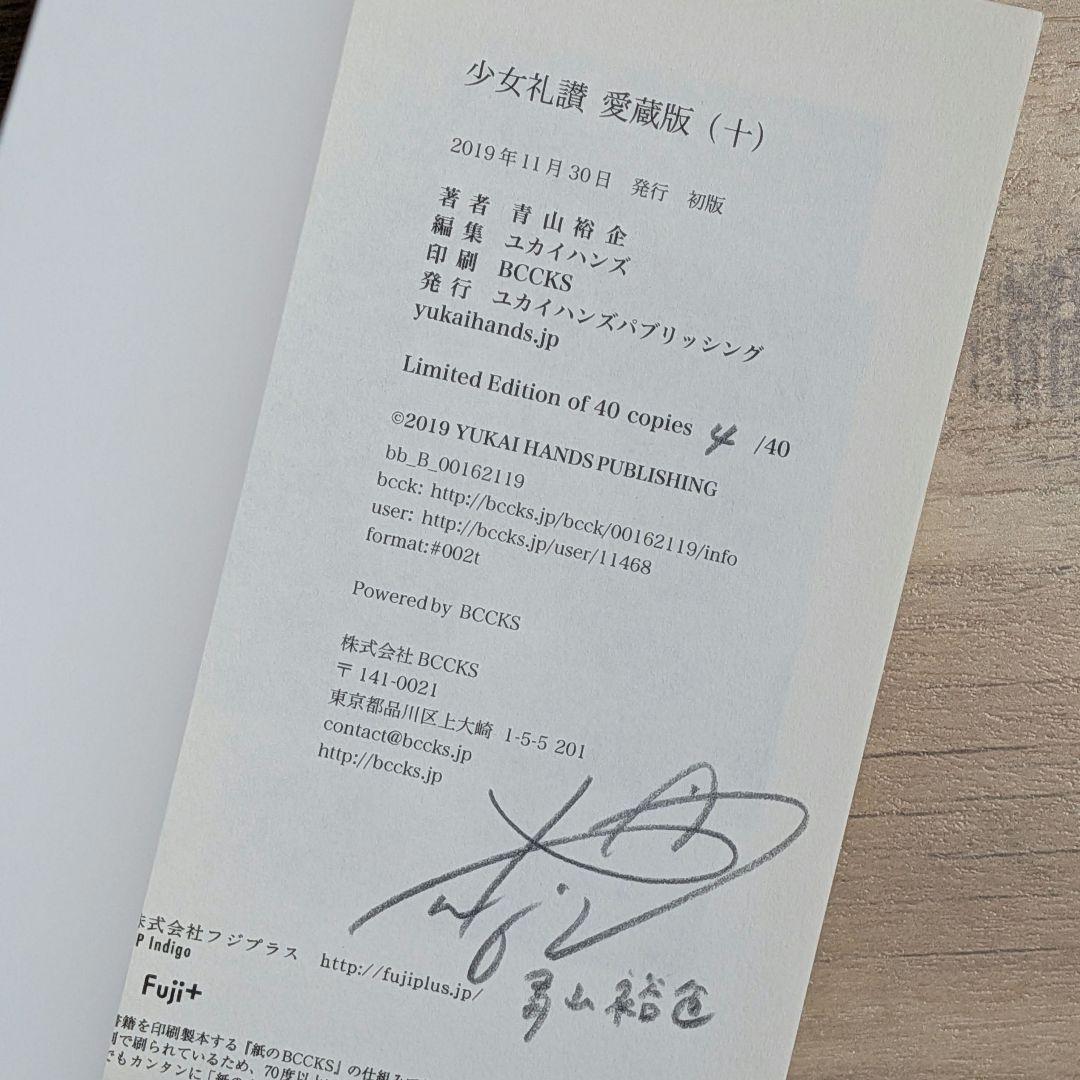 少女礼讃 愛蔵版（十）
2019年11月30日 発行 初版
著者 青山裕企
編集 ユカイハンズ
印刷 BCCKS
発行 ユカイハンズパブリッシング
yukaihands.jp
Limited Edition of 40 copies 4 /40
©2019 YUKAI HANDS PUBLISHING
bb_B_00162119
bcck: http://bccks.jp/bcck/00162119/info
user: http://bccks.jp/user/11468
format:#002t
Powered by BCCKS
株式会社 BCCKS
〒141-0021
東京都品川区上大崎 1-5-5 201
contact@bccks.jp
http://bccks.jp
青山裕企
株式会社フジプラス http://fujiplus.jp/
P Indigo
Fuji+
書籍を印刷製本する『紙のBCCKS』の仕組み
で刷られているため、70度以
でもカンタンに「紙の